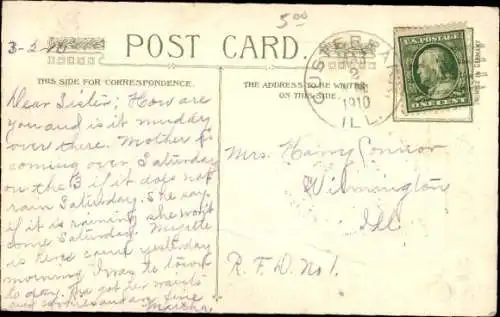 5 00
3-2-10
POST CARD.
THIS SIDE FOR CORRESPONDENCE.
THE ADDRESS TO BE WRITTEN
ON THIS SIDE.
CUSTER PARK
2
1910
ILL.
U.S. POSTAGE
ONE CENT
Dear Sister; How are
you and is it muddy
over there. Mother is
coming over Saturday
on the 3 if it does not
rain Saturday. She say
if it is raining she won't
come Saturday.
is here came yesterday
morning I was to town
to day. got her waist
and
Martha.
Mrs. Harry Connor
Wilmington
Ill.
R.F.D. No 1.